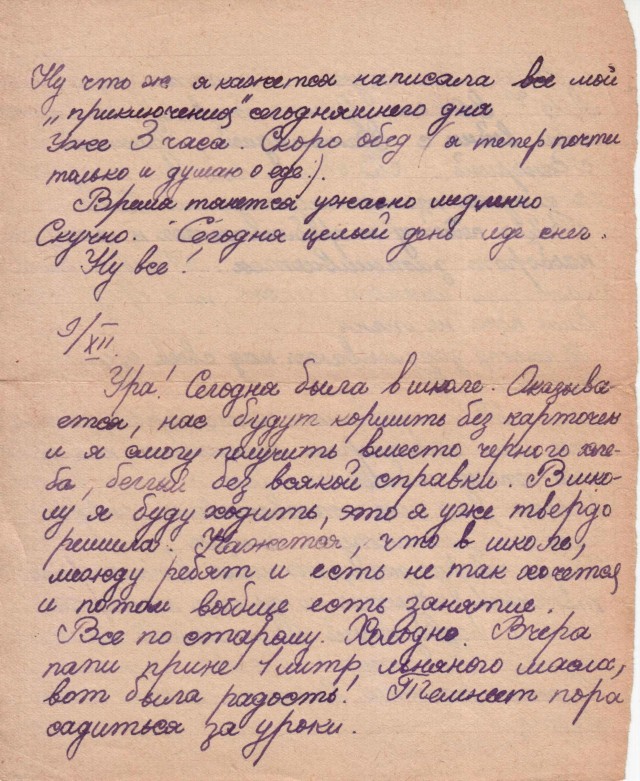 Ну что ж я кажется написала все мои
„приключения" сегодняшнего дня
Уже 3 часа Скоро обед (я тепер почти
только и думаю о еде:).
Время тянется ужасно медленно
Скучно. Сегодня целый день иде снег.
Ну все!
9/XII.
Ура! Сегодня была в школе. Оказыва
ется, нас будут кормить без карточек
и я смогу получить вместо черного хле-
ба, белый без всякой справки. В шко-
лу я буду ходить, это я уже твердо
решила. Кажется, что в школе,
между ребят и есть не так хочется
и потом вообще есть занятие.
Все по старому. Холодно. Вчера
папи прине 1 литр льняного масла,
вот была радость! Темнеет пора
садиться за уроки.